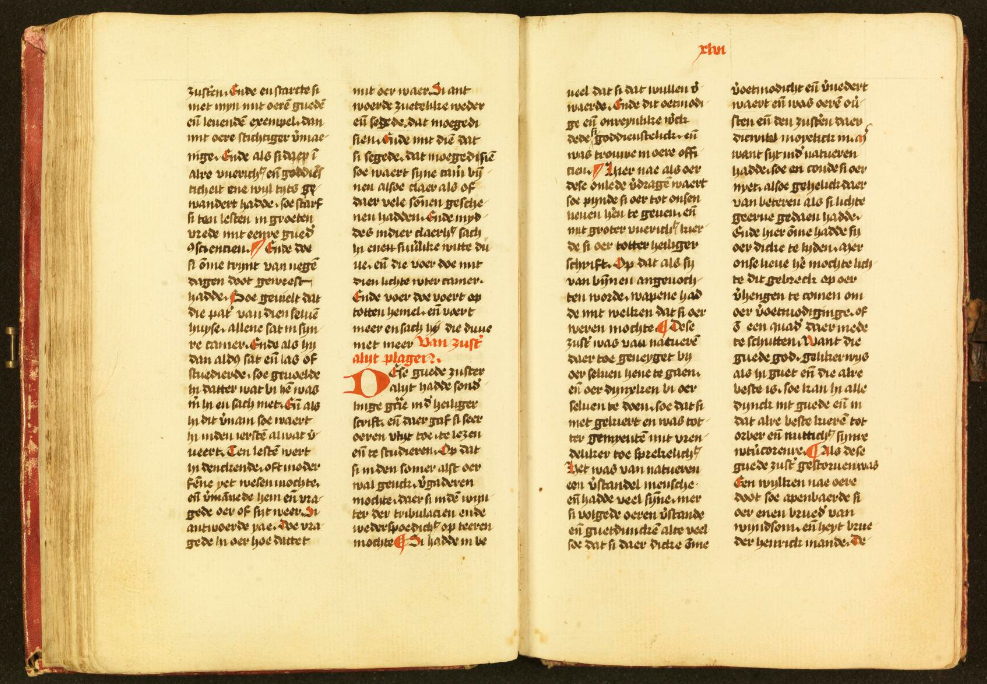 xlvi
zustēn. Ende en starcte si
met myn mit oerē guedē
eñ levendē exempel. dan
mit oere stichtiger v̄mae
nige. Ende als si
ticheit ene wyl tyts ge
wandert hadde. soe starf
si ten lesten in groeten
vrede mit eenre gued
consciencien. Ende doe
si ōme trynt van negē
dagen doot geweest
hadde. Soe geviel dat
die pat᷑ van dien seluē
huyse. allene sat in syn
re camer. Ende als hy
dan aldus sat eñ las of
studierde. soe gevoelde
hi datter wat bi hē was
mer hi en sach niet. Eñ als
hi dit v̄nam soe waert
hi inden yerstē al wat v̄
veert. Ten lestē wert
hi denckende. oft moder
fēne yet wesen mochte.
eñ v̄māede hem en vra
gede oer of sijt weer. Si
antwoerde yae. Doe vra
gede hi oer hoe dattet
mit oer waer. Si ant
woerde zuetelike weder
eñ segede. dat moegedi
sien. Ende mit dien dat
si segede. dat moegedi siē
soe waert syne cam᷑ bin
nen alsoe claer als of
daer vele sonen gesche
nen hadden. Ende myd
des in dier claerh᷑ sach
hi enen suūlike witte du
ue. eñ die voer doe mit
dien lichte wter camer.
Ende voer doe voert op
totten hemel. eñ voert
meer en sach hy die duue
niet meer Van zust᷑
alijt plagen.
Dese guede zuster
alijt hadde sond᷑
linge grāe in d᷑ heiliger
scrift. eñ daer gaf si seer
oeren vlijt toe. te lezen
eñ te studieren. Op dat
si in den somer alst oer
wal genck. v̄gaderen
mochte. daer si in dē wyn
ter der tribulacien ende
wederspoedich᷑ op teeren
mochte Si hadde in be
veel dat si dat wullen v̄
waerde. Ende dit oetmodi
ge eñ onreynlike w̄ck
dede si goddienstelick. eñ
was trouwe in oere offi
cien. Hier nae als oer
dese onlede v̄dragē waert
soe pynde si oer tot onsen
lieuen hēn te geuen. eñ
mit groter vuerich᷑ kier
de si oer totter heiliger
schrift. Op dat als sy
van bynnen angevoch
ten worde. wapene had
de mit welken dat si oer
weren mochte Dese
zust᷑ was van naturē
daer toe geneyget by
oer seluen hene te gaen.
eñ oer dyncken bi oer
seluen te doen. soe dat si
met gekiert en was tot
ter gemeynte mit vren
deliker toe sprekelich᷑
Het was van naturen
een v̄standel mensche.
eñ hadde veel syne. mer
si volgede oeren v̄stande
eñ guetduncken alte veel
soe dat si daer dicke ōme
v̄oetmodicht eñ v̄nedert
waert eñ was oerē ov̄
sten eñ den zustēn daer
dicwijl moyelick in.
want sijt in d᷑ natueren
hadde. soe en conde si oer
nyet. alsoe gehelick daer
van beteren als si lichte
geerne gedaen hadde.
Ende hier ōme hadde sy
oer dicke te lyden. Mer
onse lieue hē mochte lich
te dit gebreck op oer
v̄hengen te comen om
oer v̄oetmodinge. of
om een quad᷑ daer mede
te schutten. Want die
guede god. gelikerwys
als hi guet eñ die alre
beste is. soe kan hi alle
dynck mit guede eñ in
dat alre beste kieren tot
orber eñ nuttich᷑ synre
wtūcorenre. Als dese
guede zust᷑ gestorven was
Een wylken nae oere
doot soe apenbaerde si
oer enen brued᷑ van
wyndsom. eñ heyt brue
der henrick mande. De